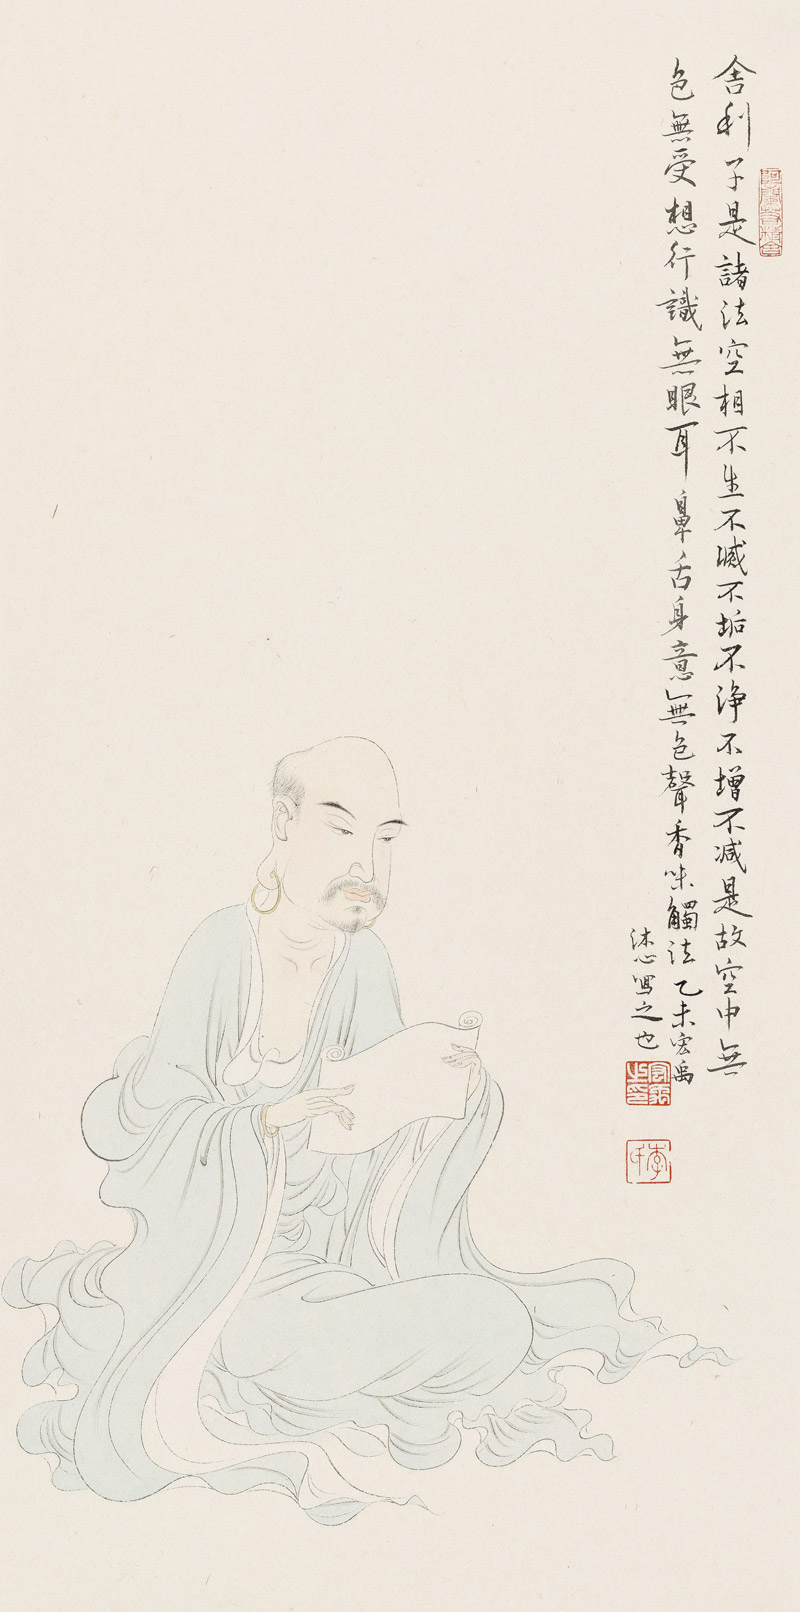 舍利子是諸法空相不生不滅不垢不淨不增不减是故空中無
色無受想行識無眼耳鼻舌身意無色聲香味觸法乙未宏禹
沐心寫之也